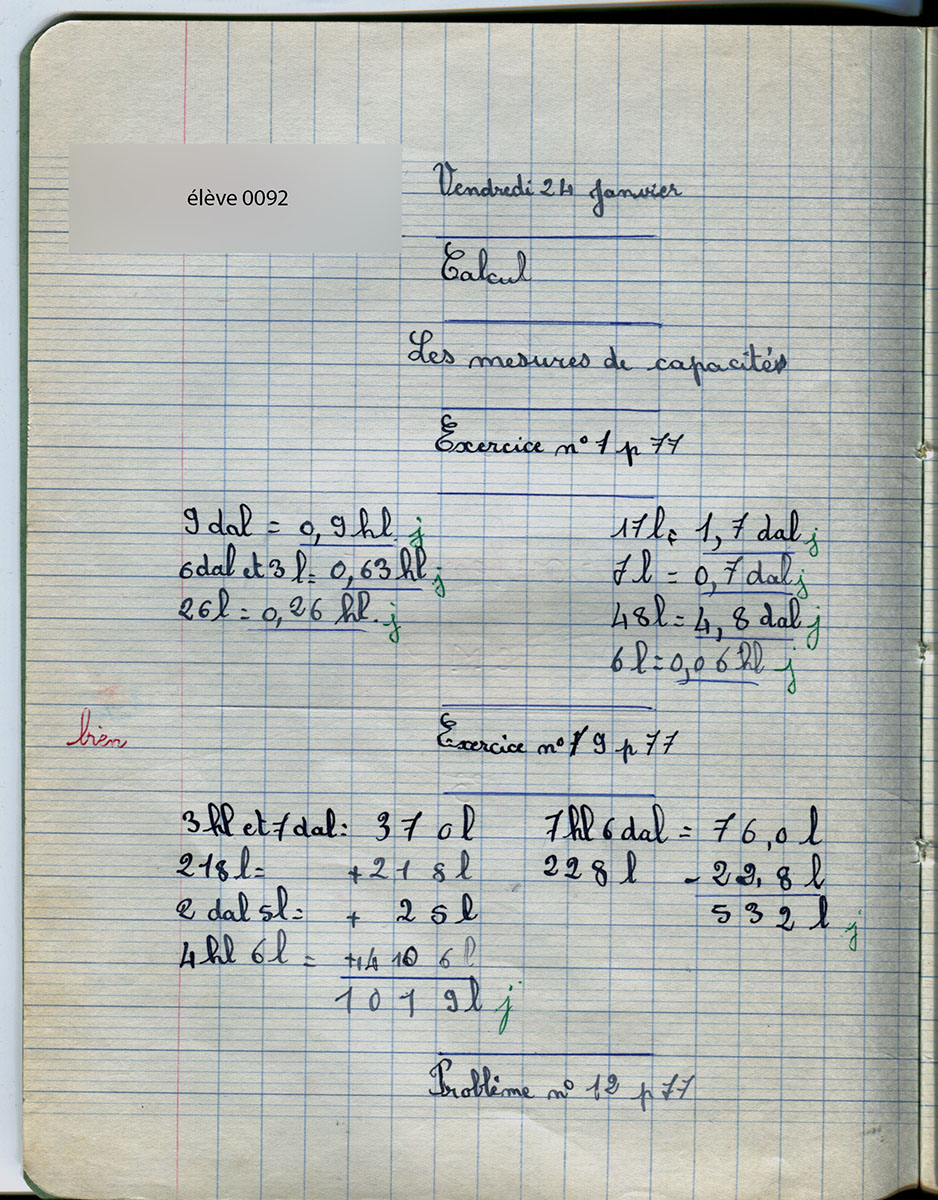 élève 0092
Vendredi 24 Janvier
Calcul
Les mesures de capacités
Exercice n° 1 p 77
9 dal = 0,9 hl. j
6 dal et 3 l = 0,63 hl j
26 l = 0,26 hl. j
17 l = 1,7 dal j
7 l = 0,7 dal j
48 l = 4,8 dal j
6 l = 0,06 hl j
bien
Exercice n° 9 p 77
3 hl et 7 dal = 370 l
218 l = +218 l
2 dal 5 l = + 25 l
4 hl 6 l = +406 l
1019 l j
7 hl 6 dal = 76,0 l
228 l - 22,8 l
532 l j
Problème n° 12 p 77